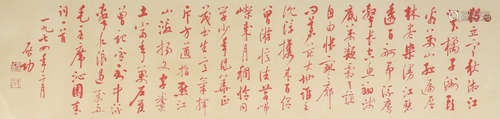 獨立寒秋湘江
北去橘子洲頭
看萬山紅遍層
林盡染漫江碧
透百舸爭流鷹
擊長空魚翔淺
底萬類霜天競
自由悵寥廓
問蒼茫大地誰主
沉浮攜來百侶
曾游憶往昔崢
嶸歲月稠恰同
學少年風華正
茂書生意氣揮
斥方遒指點江
山激揚文字糞
土當年萬戶侯
曾記否到中流
擊水浪遏飛舟
毛主席沁園春
詞一首
一九七四年二月
啟功